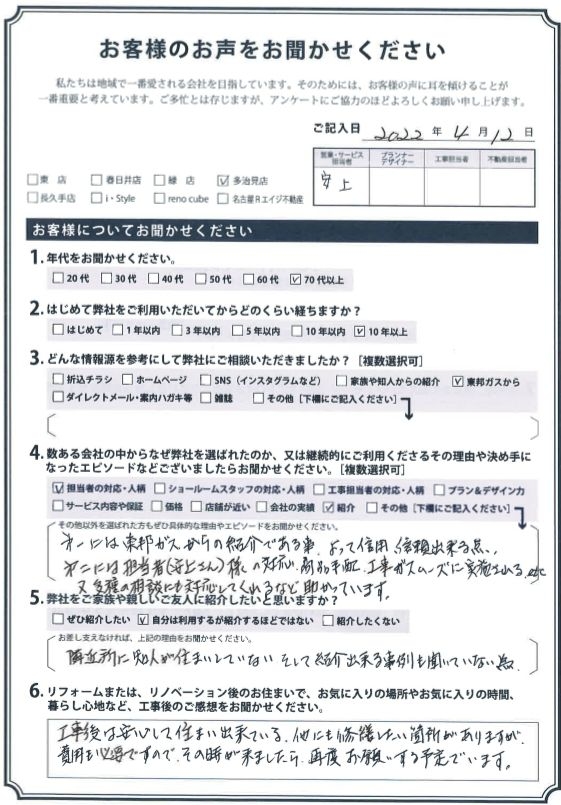 お客様のお声をお聞かせください
私たちは地域で一番愛される会社を目指しています。そのためには、お客様の声に耳を傾けることが
一番重要と考えています。ご多忙とは存じますが、アンケートにご協力のほどよろしくお願い申し上げます。
ご記入日 2022 年 4 月 12 日
営業・サービス担当者 プランナーデザイナー 工事担当者 不動産担当者
安上
□東 店 □春日井店 □緑 店 ☑多治見店
□長久手店 □i・Style □reno cube □名古屋Rエイジ不動産
お客様についてお聞かせください
1. 年代をお聞かせください。
□20代 □30代 □40代 □50代 □60代 ☑70代以上
2. はじめて弊社をご利用いただいてからどのくらい経ちますか？
□はじめて □1年以内 □3年以内 □5年以内 □10年以内 ☑10年以上
3. どんな情報源を参考にして弊社にご相談いただきましたか？［複数選択可］
□折込チラシ □ホームページ □SNS（インスタグラムなど） □家族や知人からの紹介 ☑東邦ガスから
□ダイレクトメール・案内ハガキ等 □雑誌 □その他［下欄にご記入ください］
4. 数ある会社の中からなぜ弊社を選ばれたのか、又は継続的にご利用くださるその理由や決め手に
なったエピソードなどございましたらお聞かせください。［複数選択可］
☑担当者の対応・人柄 □ショールームスタッフの対応・人柄 □工事担当者の対応・人柄 □プラン＆デザイン力
□サービス内容や保証 □価格 □店舗が近い □会社の実績 ☑紹介 □その他［下欄にご記入ください］
その他以外を選ばれた方もぜひ具体的な理由やエピソードをお聞かせください。
第一には東邦ガスからの紹介である事、よって信用、信頼出来る点、
第二には担当者(安上さん)様の対応、部品手配、工事がスムーズに実施される、etc
又多種の相談にも対応してくれるなど助かっています。
5. 弊社をご家族や親しいご友人に紹介したいと思いますか？
□ぜひ紹介したい ☑自分は利用するが紹介するほどではない □紹介したくない
お差し支えなければ、上記の理由をお聞かせください。
隣近所に知人が住まいしていない そして紹介出来る事例も聞いていない為.
6. リフォームまたは、リノベーション後のお住まいで、お気に入りの場所やお気に入りの時間、
暮らし心地など、工事後のご感想をお聞かせください。
工事後は安心して住まい出来ている、他にも修繕したい箇所がありますが、
費用も必要ですので、その時が来ましたら、再度お願いする予定でいます。